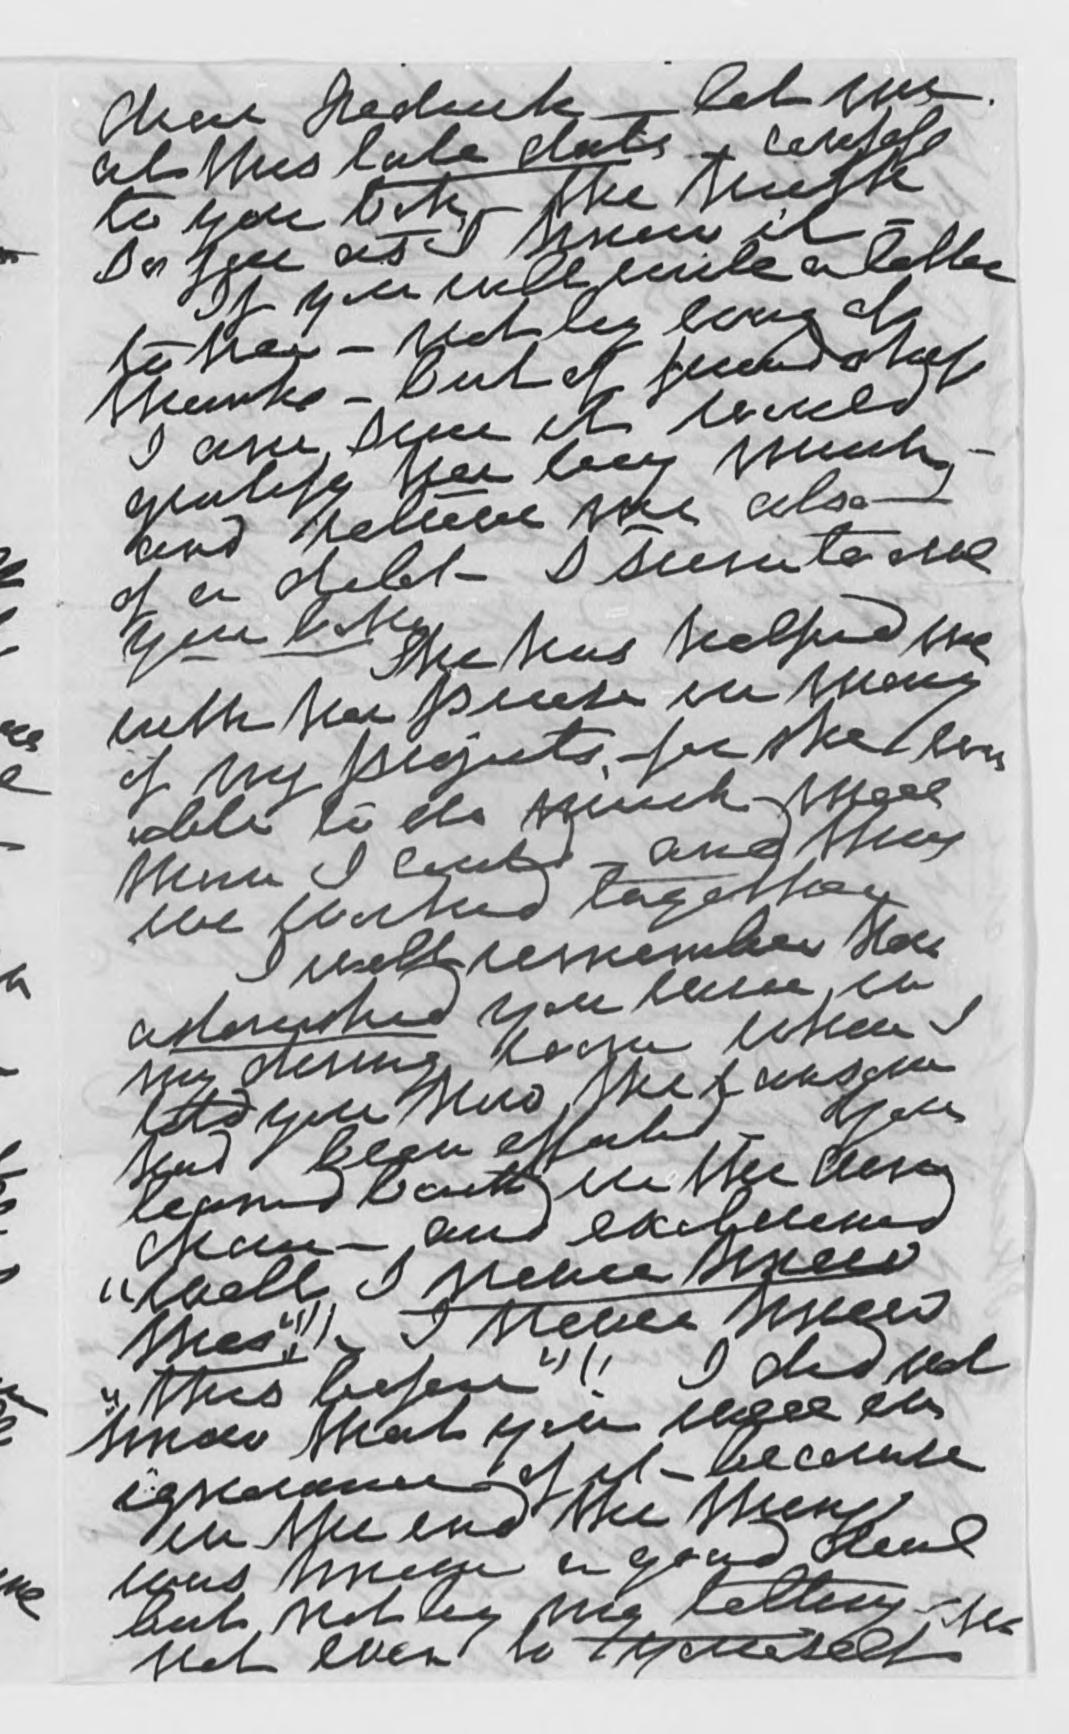 Dear Frederick – let me.
at this late date – confess
to you both – the truth
so far as I know it –
If you will write a letter
to her – not by way of
thanks – but of friendship
I am sure it would
gratify her very much, –
and relieve me also –
of a debt – I seem to owe
you both.
She has helped me
with her purse in many
of my projects, – for she was
able to do much more
than I could – and thus
we worked together
I well remember how
astonished you were, in
my dining room when I
told you how the ransom
had been effected – You
leaned back in the dining
chair – and exclaimed
"Well I never knew
this"!!! – I never knew
"this before"!! I did not
know that you were in
ignorance of it – because
in the end the thing
was known a good deal
but not by my telling – her
not even to myself